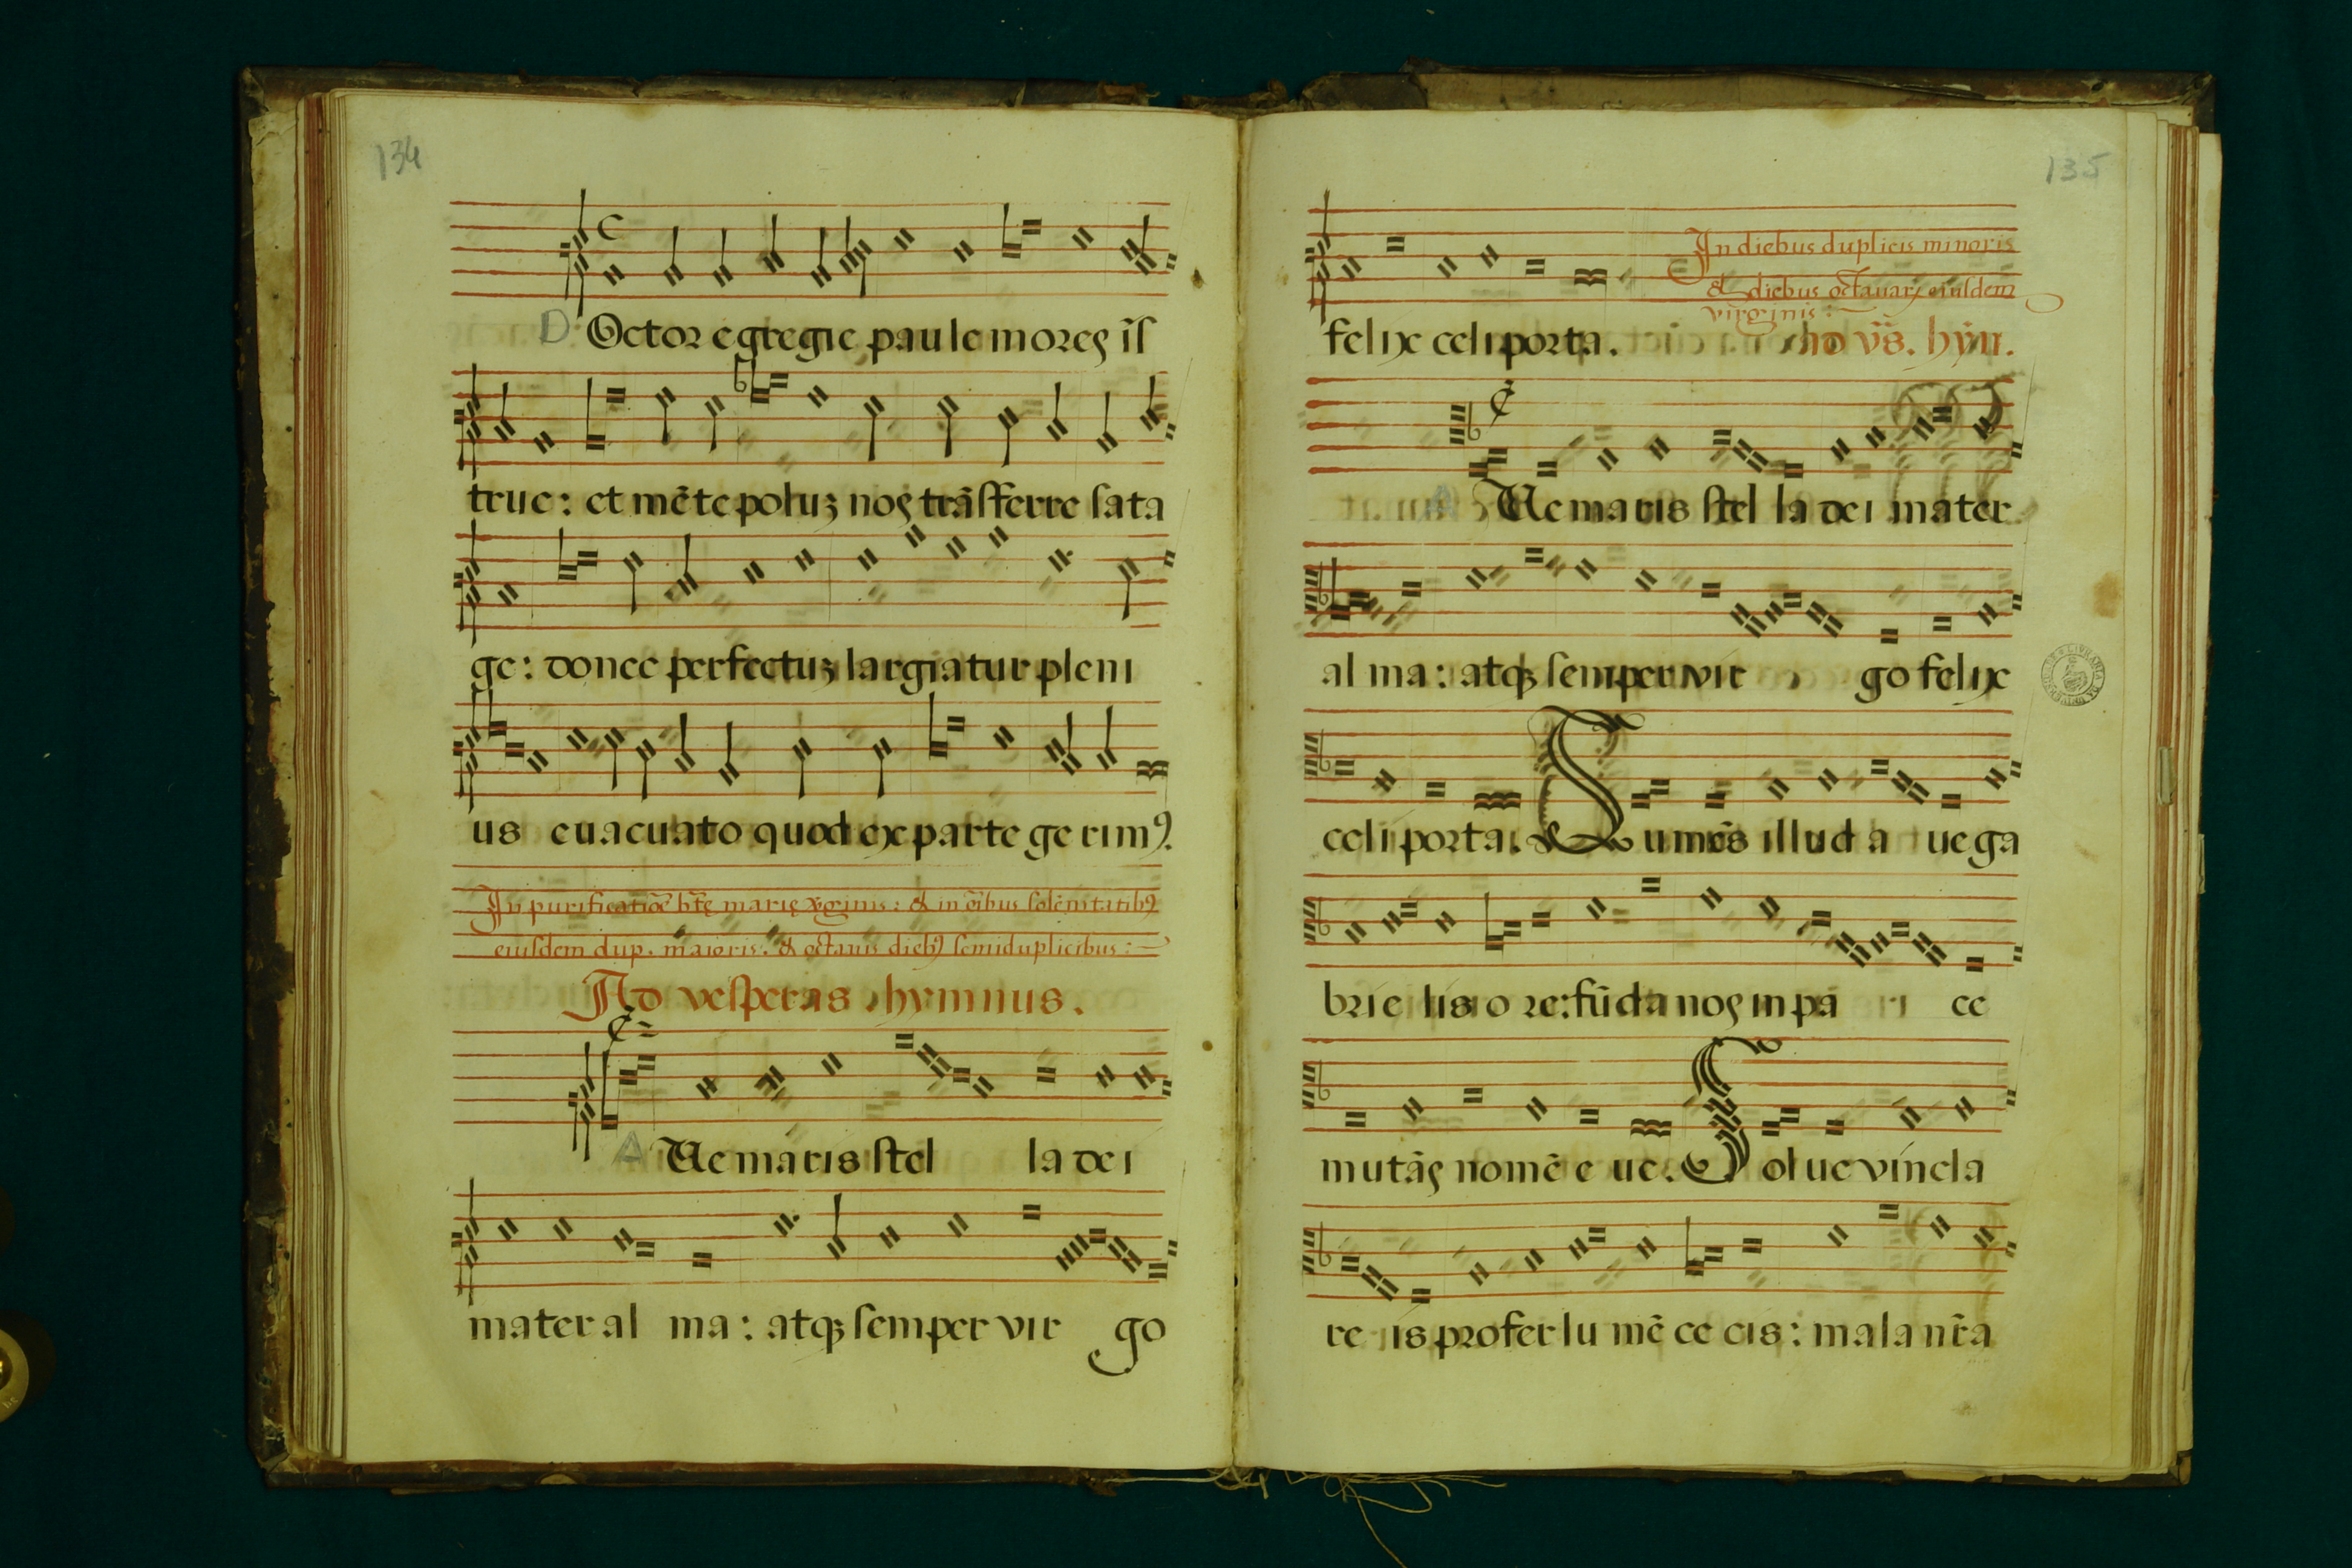 134
D Octor egregie paule moreς iſ̃
true : et mẽte poluʒ noς trãſferre ſata
ge : donec perfectuʒ largiatur pleni
us euacuato quod ex parte ge rimꝰ.
In purificatiõe bt̃ę marię v̓ginis : & in oĩbus solẽnitatibꝰ
eiuſdem dup. maioris : & octauis diebꝰ ſemiduplicibus :
Ad veſperas hymnus.
A Ue maris ſtel la dei
mater al ma : atqʒ ſemper vir go
135
In diebus duplicis minoris
& diebus octauarꝝ eiuſdem
virginis :
felix celi porta. ad vẽs. hyṁ.
A Ue maris ſtel la dei mater
al ma : atqʒ ſemper vir go felix
celi porta. Sumẽs illud a ue ga
brie lis o re : fũda noς in pa ce
mutãς nomẽ e ue. Solue vincla
re is profer lu mẽ ce cis : mala nr̃a